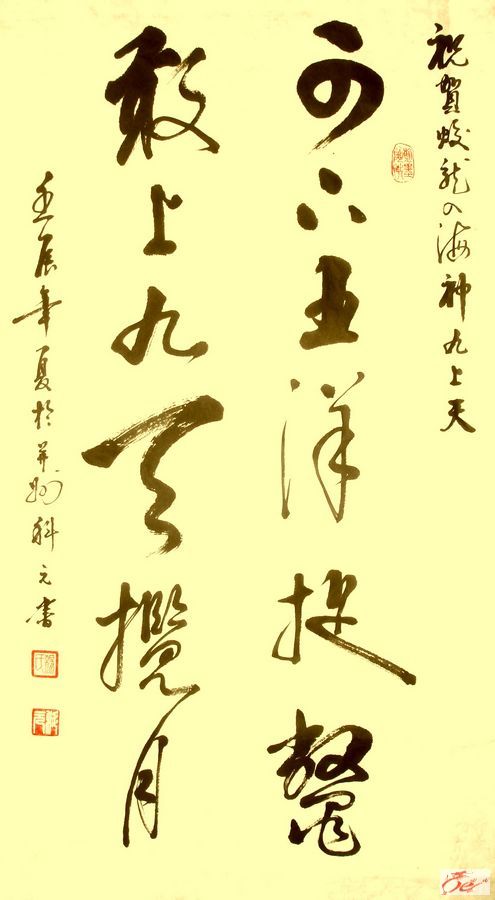 祝賀蛟龍入海神九上天
可下五洋捉鼈
敢上九天攬月
壬辰年夏於并州科元書